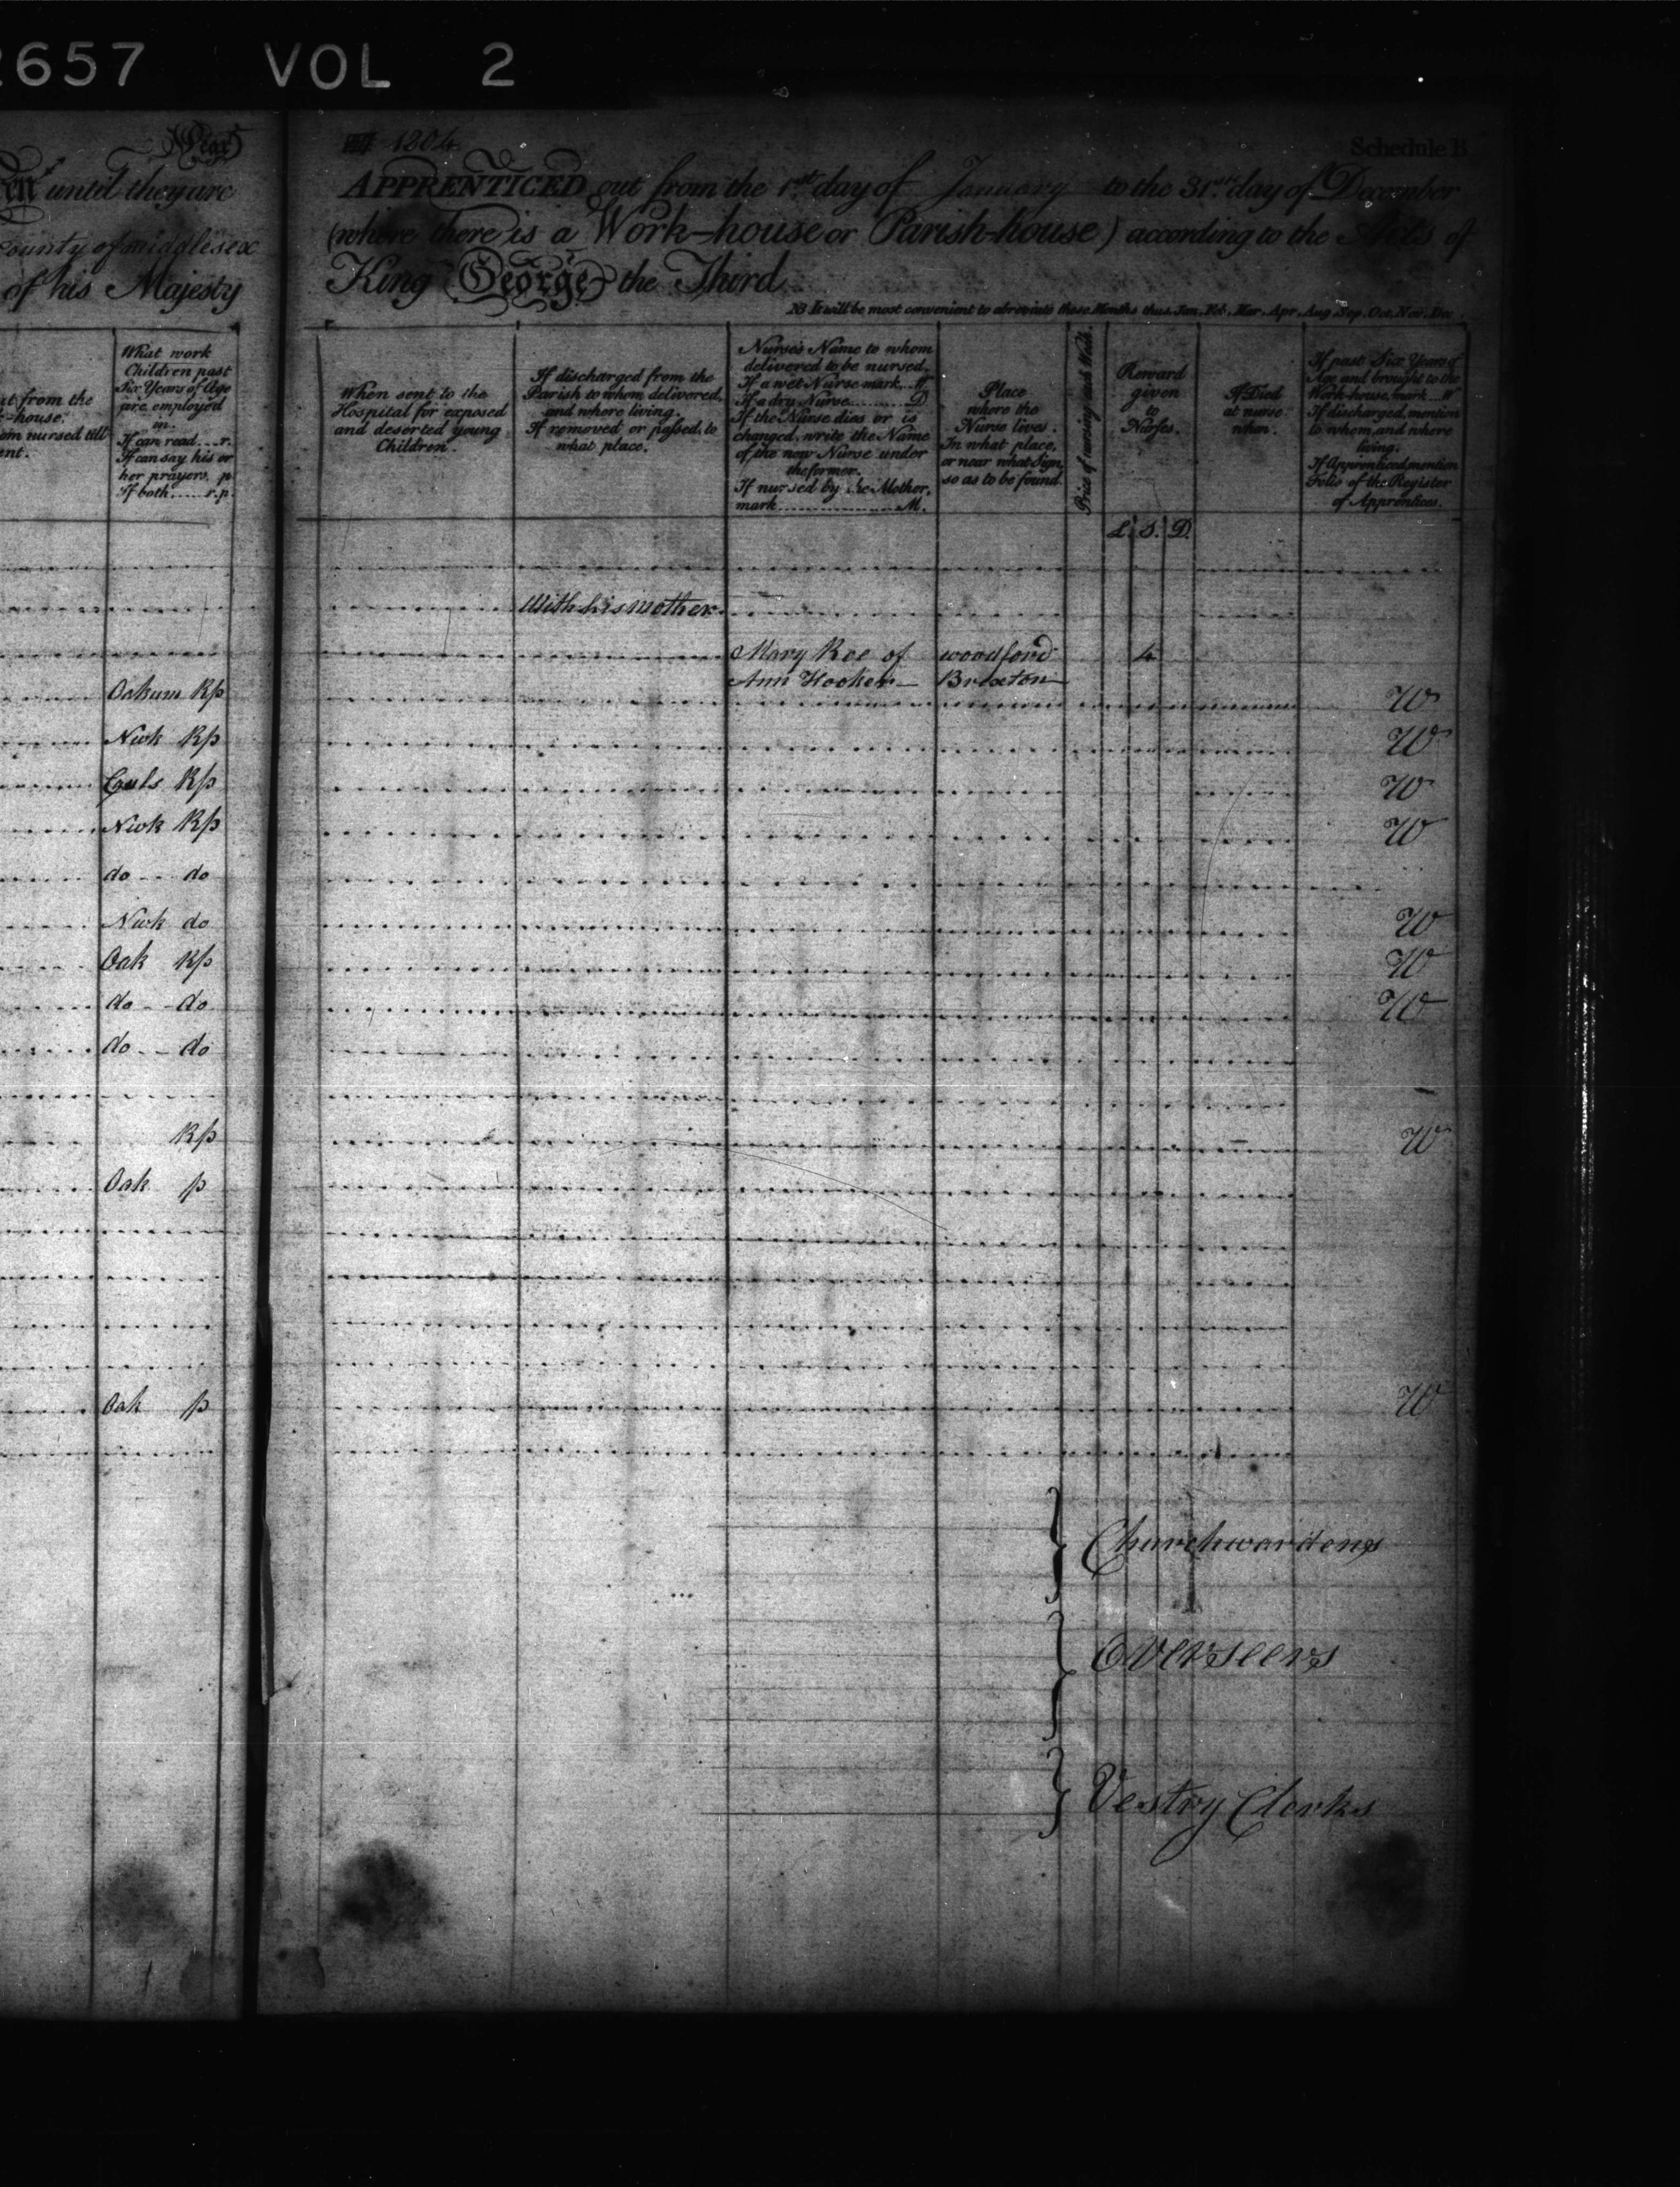 2657 VOL 2
Year
1804
Schedule B
en until they are
APPRENTICED out from the 1st day of January to the 31st day of December
County of middlesex
(where there is a Work-house or Parish-house) according to the Acts of
of his Majesty
King George the Third
NB It will be most convenient to abreviate these Months thus. Jan. Feb. Mar. Apr. Aug. Sep. Oct. Nov. Dec.
from the
-house.
nursed till
What work
Children past
Six Years of Age
are employed
in.
If can read....r.
If can say his or
her prayers. p
If both......r.p.
When sent to the
Hospital for exposed
and deserted young
Children.
If discharged from the
Parish to whom delivered,
and where living.
If removed or passed, to
what place.
Nurse's Name to whom
delivered to be nursed.
If a wet Nurse mark...W
If a dry Nurse..........D
If the Nurse dies or is
changed, write the Name
of the new Nurse under
the former.
If nursed by the Mother,
mark..................M.
Place
where the
Nurse lives.
In what place,
or near what Sign,
so as to be found
Price of nursing each Week.
Reward
given
to
Nurses.
If Died
at nurse
when.
If past Six Years of
Age and brought to the
Work-house, mark...W
If discharged, mention
to whom, and where
living.
If Apprenticed, mention
Folio of the Register
of Apprentices.
L. S. D.
With his mother
Mary Roe of woodford 4
Ann Hooker Brixton
Oakum Rp W
Nwk Rp W
Rp W
Nwk Rp W
do do
Nwk do W
Oak Rp W
do do W
do do
Rp W
Oak p
Oak p W
Churchwardens
Overseers
Vestry Clerks